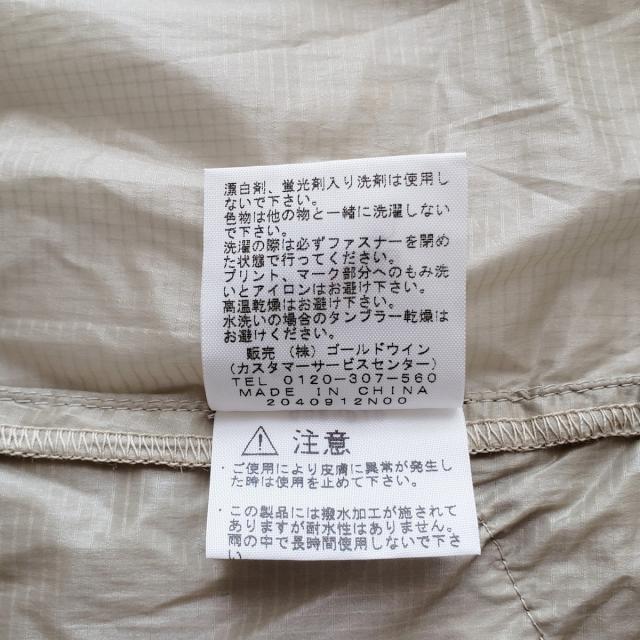 漂白剤、蛍光剤入り洗剤は使用し
ないで下さい。
色物は他の物と一緒に洗濯しない
で下さい。
洗濯の際は必ずファスナーを閉め
た状態で行ってください。
プリント、マーク部分へのもみ洗
いとアイロンはお避け下さい。
高温乾燥はお避け下さい。
水洗いの場合のタンブラー乾燥は
お避けください。
販売 (株) ゴールドウイン
(カスタマーサービスセンター)
TEL 0120-307-560
MADE IN CHINA
2040912N00
注意
・ご使用により皮膚に異常が発生し
た時は使用を止めて下さい。
・この製品には撥水加工が施されて
ありますが耐水性はありません。
雨の中で長時間使用しないで下さ
い